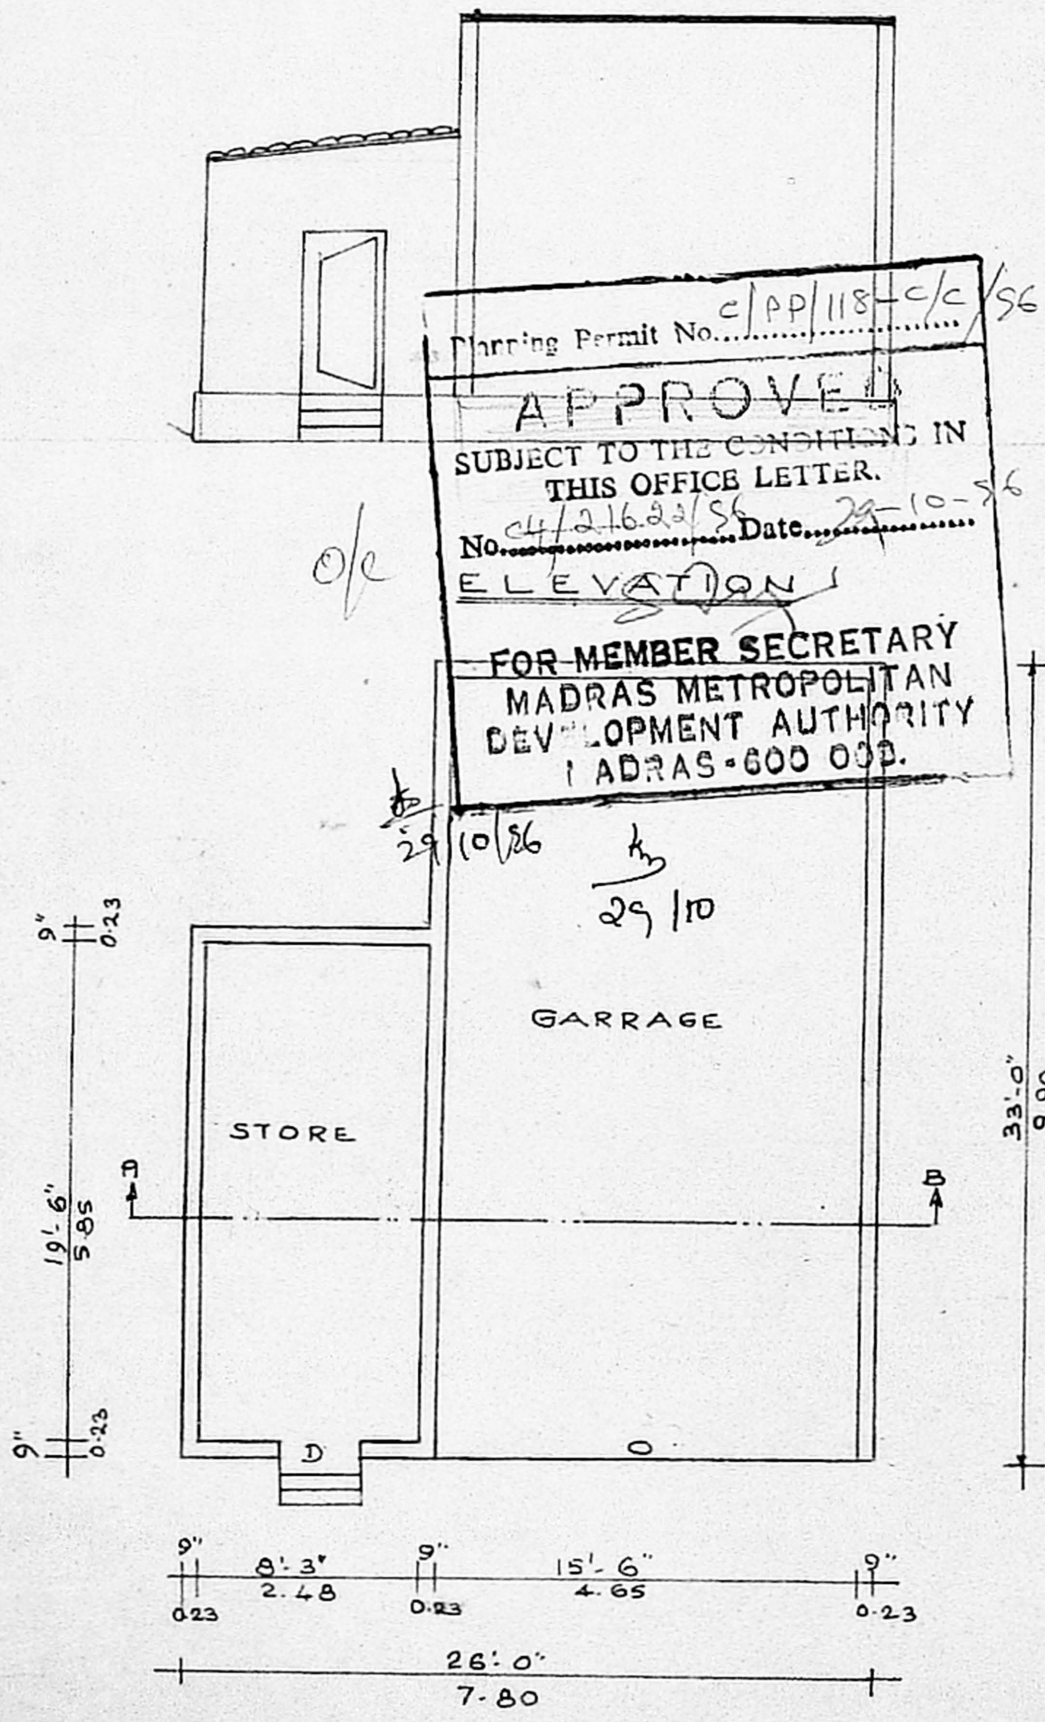 Planning Permit No. C/PP/118-C/C/86
APPROVED
SUBJECT TO THE CONDITIONS IN
THIS OFFICE LETTER.
No. C4/21622/86 Date 29-10-86
O/C
ELEVATION
FOR MEMBER SECRETARY
MADRAS METROPOLITAN
DEVELOPMENT AUTHORITY
MADRAS-600 008.
29/10/86
29/10
9"
0.23
GARRAGE
33'-0"
STORE
A
B
19'-6"
5.85
9"
0.23
D
O
9" 8'-3" 9" 15'-6" 9"
0.23 2.48 0.23 4.65 0.23
26'-0"
7.80